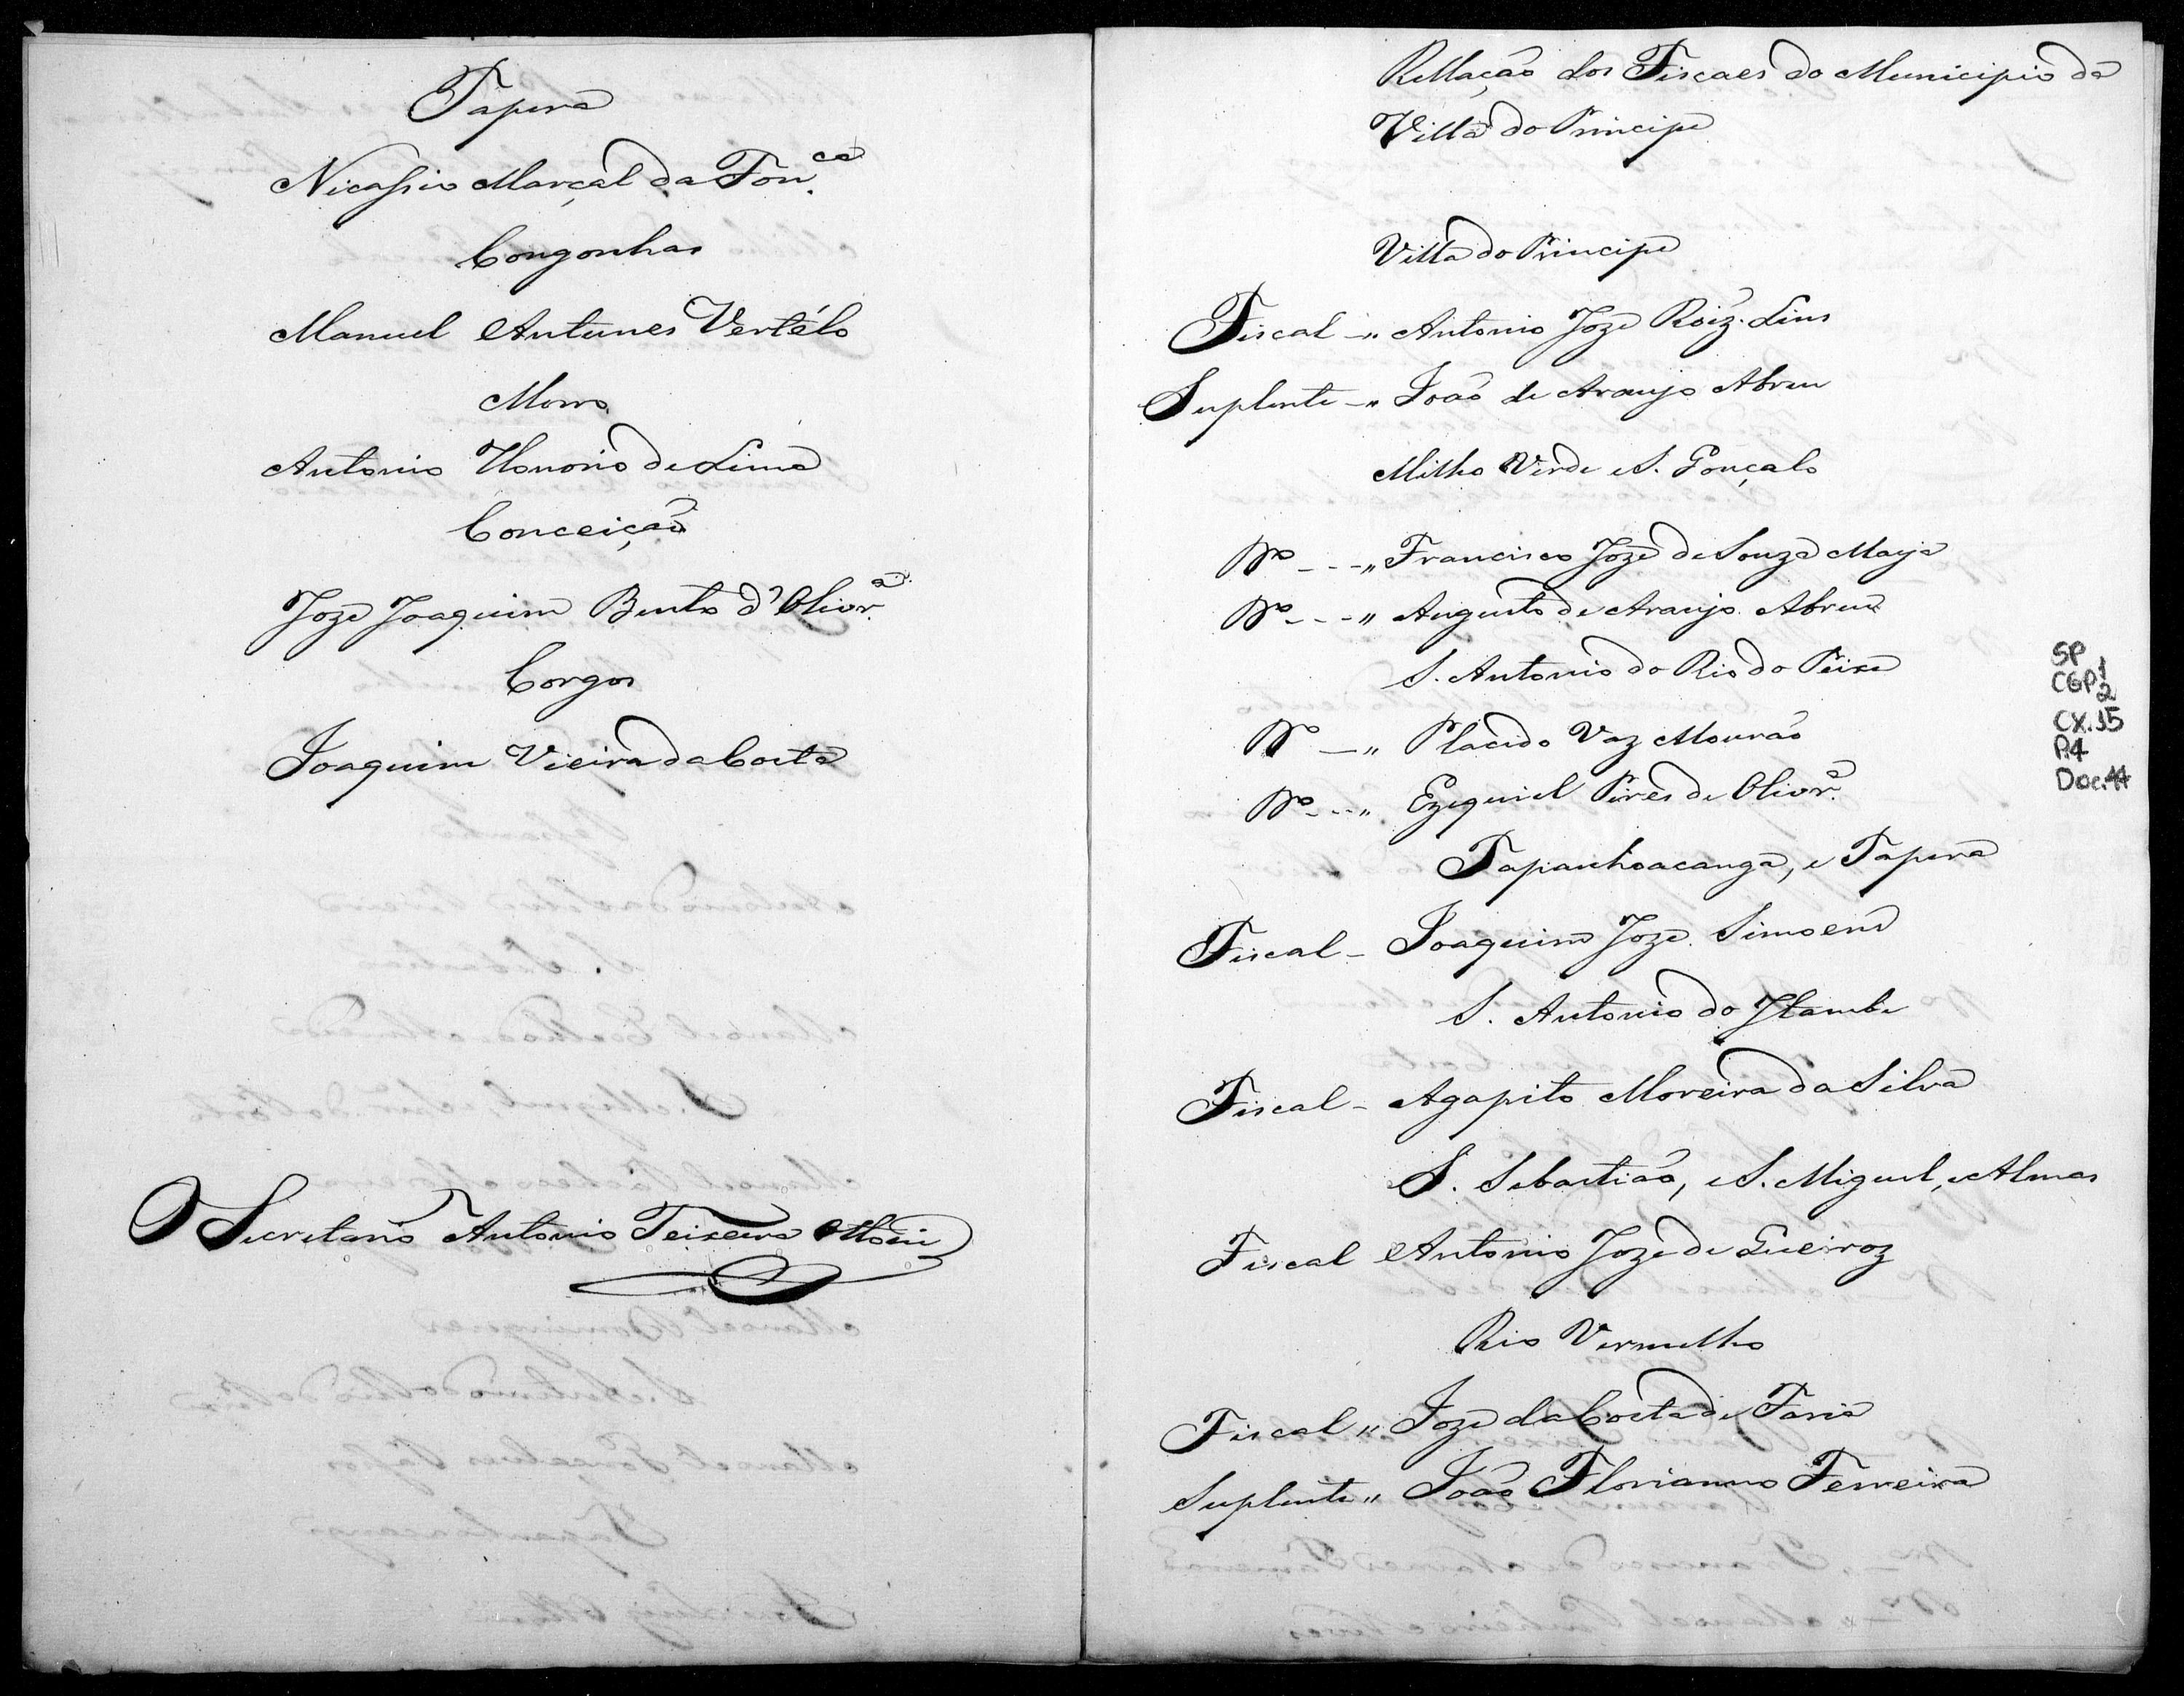 Tapera
Nicassio Marçal da Fon.ca
Congonhas
Manuel Antunes Vertélo
Morro
Antonio Honorio de Lima
Conceição
Joze Joaquim Bento d'Olivr.a
Corgos
Joaquim Vieira da Costa
O Secretario Antonio Teixeira Ottoni
Rellação dos Fiscaes do Municipio da
Villa do Principe
Villa do Principe
Fiscal -" Antonio Joze Roiz. Lins
Suplente -" João de Araujo Abreu
Milho Verde e S. Gonçalo
Francisco Joze de Souza Maya
Augusto de Araujo Abreu
S. Antonio do Rio do Peixe
Placido Vaz Mourão
Ezequiel Pires de Olivr.a
Tapanhoacanga, e Tapera
Fiscal - Joaquim Joze Simoens
S. Antonio do Itambe
Fiscal - Agapito Moreira da Silva
S. Sebastião, e S. Miguel, e Almas
Fiscal Antonio Joze de Queiroz
Rio Vermelho
Fiscal " Joze da Costa de Faria
Suplente " João Florianno Ferreira
SP
CGP1
2
CX.15
P.4
Doc.44